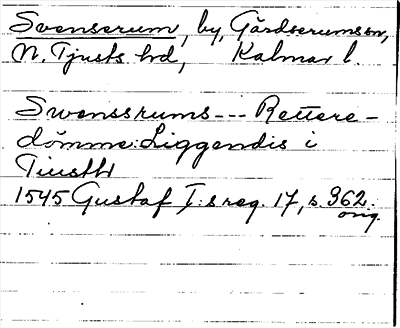 Svenserum, by, Gårdserums sn,
N. Tjusts hd, Kalmar l.
Swenssrums --- Rettere-
dömme: Liggendis i
Tiustt
1545 Gustaf I:s reg. 17, s. 362.
orig.